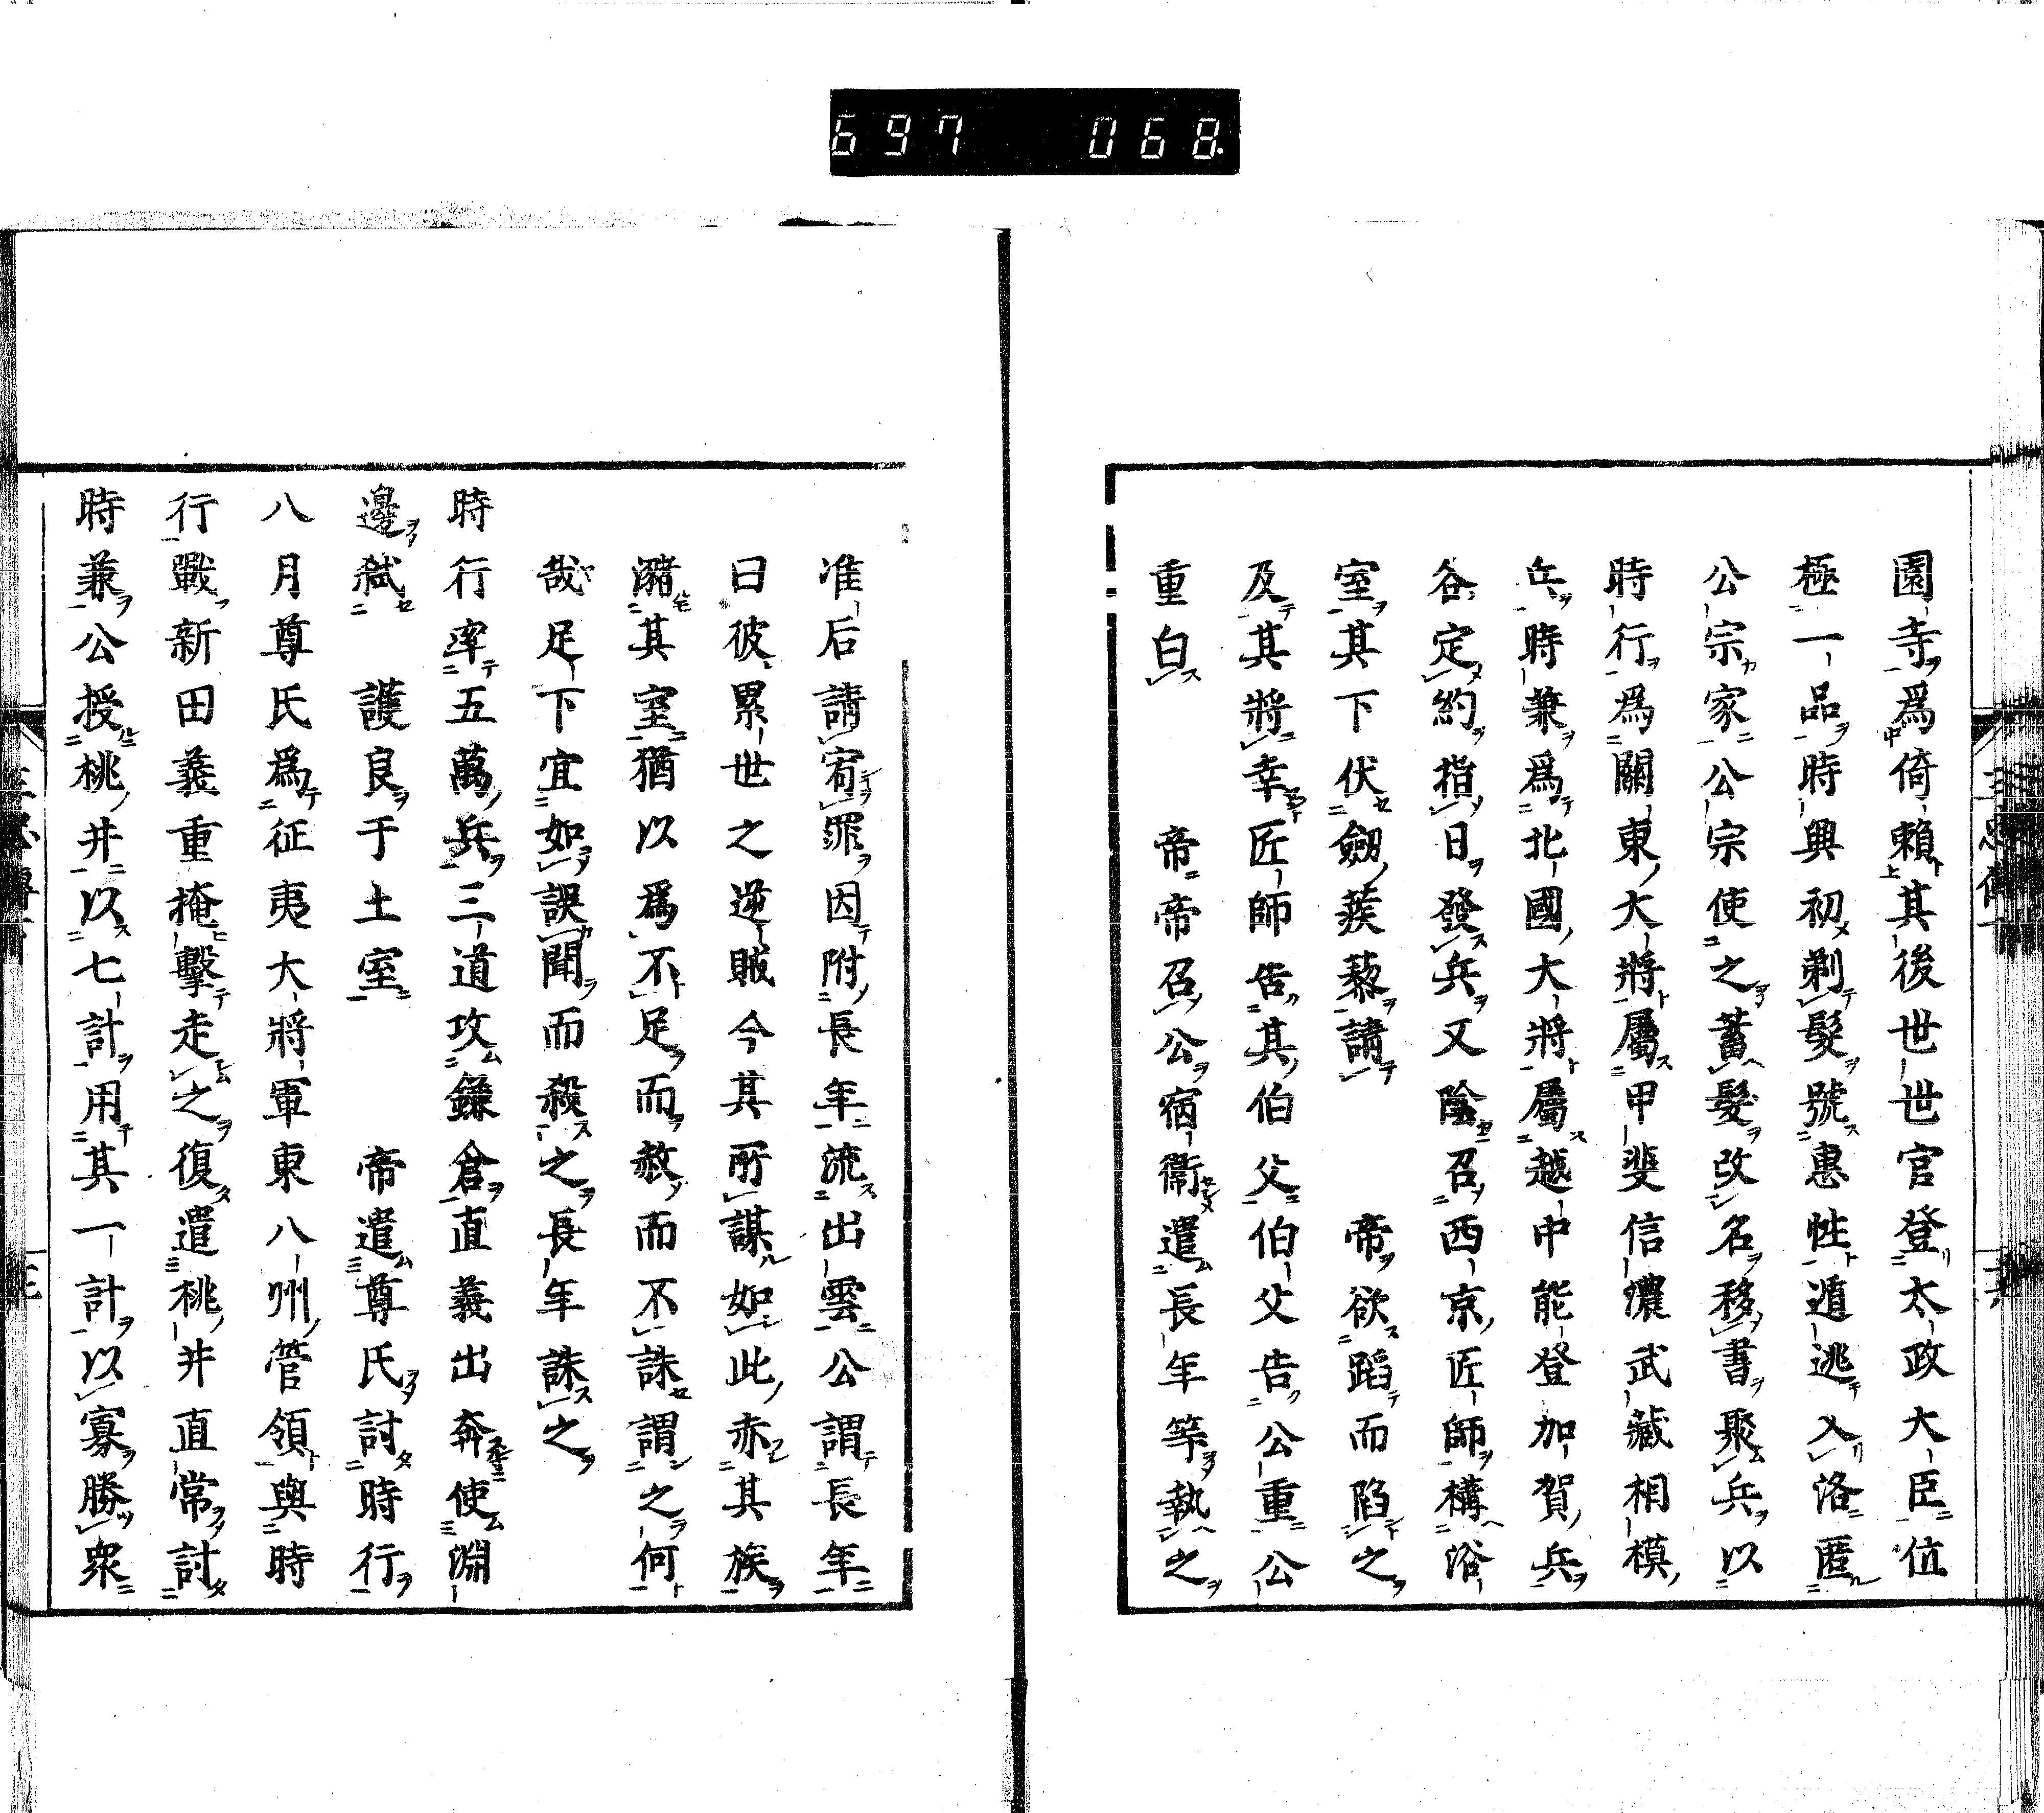 697 068
園寺爲倚賴其後世世官登太政大臣位
極一品時興初剃髮號惠性遁逃入洛匿
公宗家公宗使之蓄髮改名移書聚兵以
時行爲關東大將屬甲斐信濃武藏相模
兵時兼爲北國大將屬越中能登加賀兵
谷定約指日發兵又陰召西京匠師構浴
室其下伏劔蒺藜請 帝欲蹈而陷之
及其將幸匠師告其伯父伯父告公重公
重白 帝帝召公宿衞遣長年等執之
准后請宥罪因附長年流出雲公謂長年
曰彼累世之逆賊今其所謀如此赤其族
瀦其室猶以爲不足而赦而不誅謂之何
哉足下宜如誤聞而殺之長年誅之
時行率五萬兵三道攻鎌倉直義出奔使淵
邊弑 護良于土室 帝遣尊氏討時行
八月尊氏爲征夷大將軍東八州管領與時
行戰新田義重掩擊走之復遣桃井直常討
時兼公授桃井以七計用其一計以寡勝衆